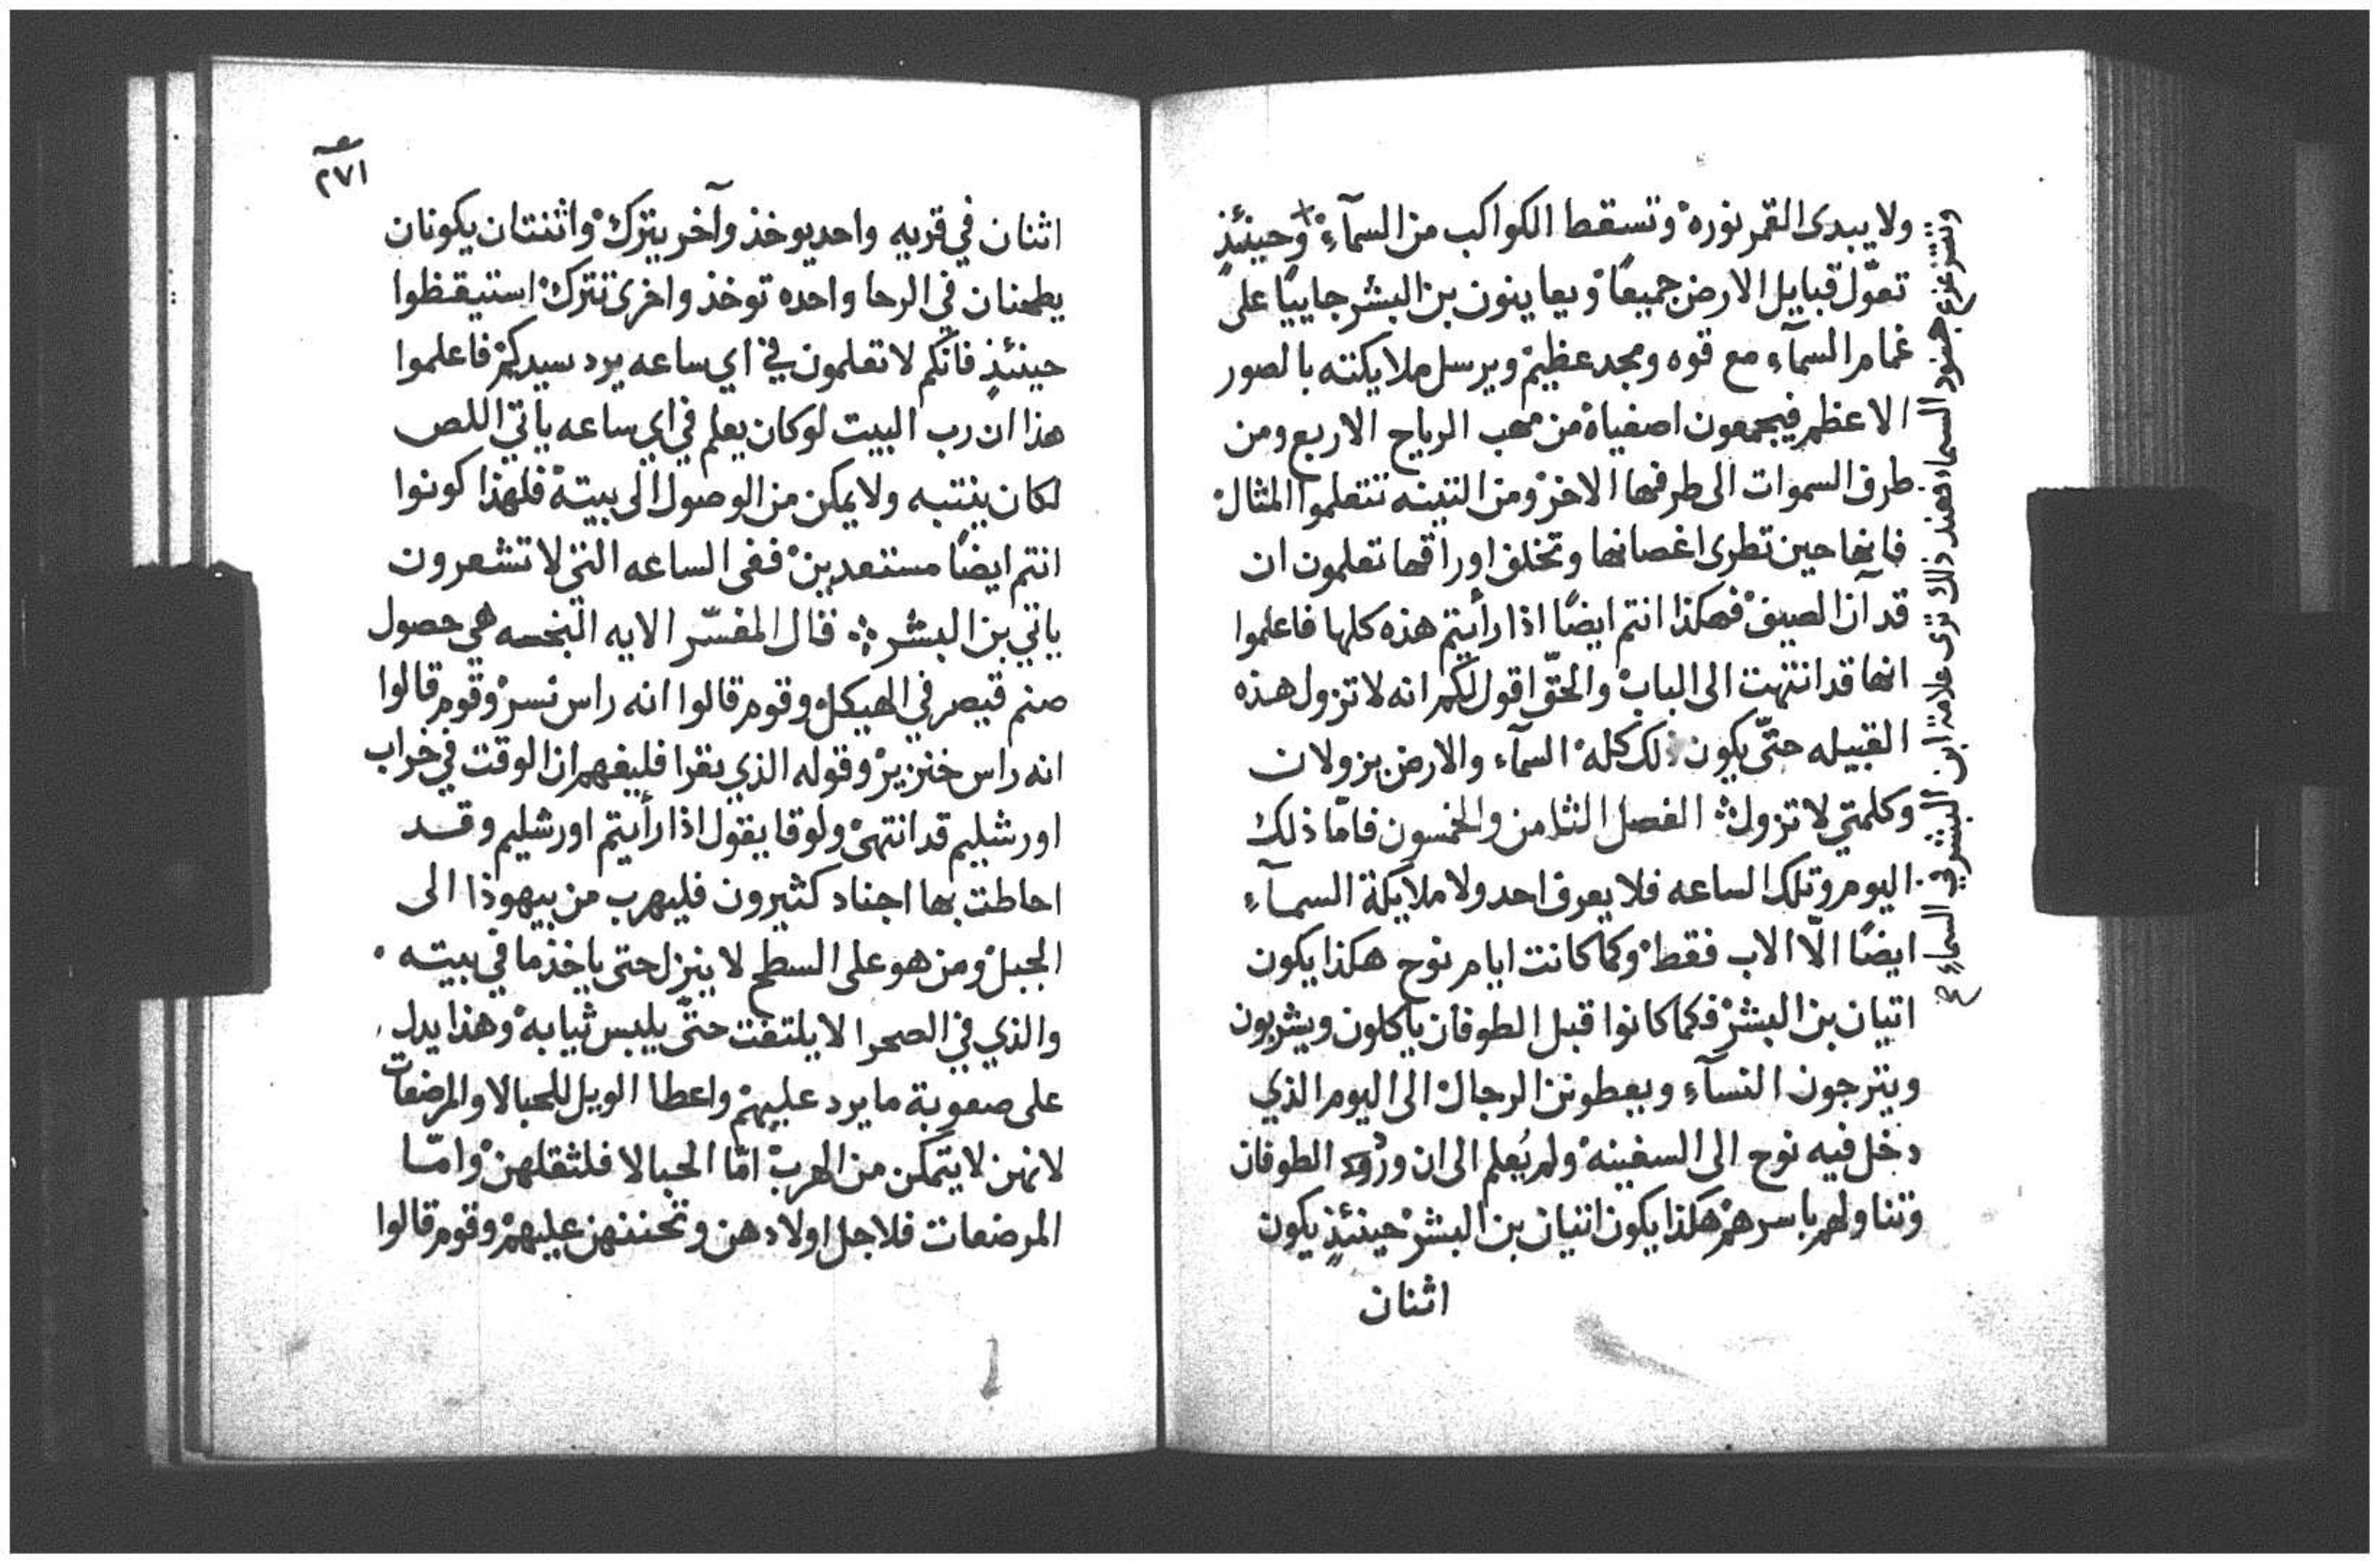 ولا يبدى القمر نوره وتسقط الكواكب من السمآء وحينئذٍ
تعوّل قبايل الارض جميعًا ويعاينون بن البشر جاييًا على
غمام السمآء مع قوه ومجد عظيم ويرسل ملايكته بالصور
الاعظم فيجمعون اصفياه من مهب الرياح الاربع ومن
طرف السموات الى طرفها الاخر ومن التينه تتعلموا المثال
فانها حين تطرى اغصانها وتخلف اوراقها تعلمون ان
قد آن الصيف فهكذا انتم ايضًا اذا رأيتم هذه كلها فاعلموا
انها قد انتهت الى الباب والحقّ اقول لكم انه لا تزول هذه
القبيله حتّى يكون ذلك كله السمآء والارض يزولان
وكلمتي لا تزول الفصل الثامن والخمسون فامّا ذلك
اليوم وتلك الساعه فلا يعرف احد ولا ملايكة السمآء
ايضًا الّا الاب فقط وكما كانت ايام نوح هكذا يكون
اتيان بن البشر فكما كانوا قبل الطوفان ياكلون ويشربون
ويتزجون النسآء ويعطونن الرجال الى اليوم الذي
دخل فيه نوح الى السفينه ولم يُعلم الى ان ورود الطوفان
وتناولهم باسرهم هكذا يكون اتيان بن البشر حينئذٍ يكون
اثنان
وتتزعزع جنود السماء وعند ذلك ترى علامة ابن البشر في السماء
٢٧١
اثنان في قريه واحد يوخذ وآخر يترك واثنتان يكونان
يطحنان في الرحا واحده توخذ واخرى تترك استيقظوا
حينئذٍ فانّكم لا تعلمون في اي ساعه يرد سيدكم فاعلموا
هذا ان رب البيت لو كان يعلم في اي ساعه ياتي اللص
لكان ينتبه ولا يمكن من الوصول الى بيته فلهذا كونوا
انتم ايضًا مستعدين ففى الساعه التي لا تشعرون
ياتي بن البشر قال المفسّر الايه النجسه هي حصول
صنم قيصر في الهيكل وقوم قالوا انه راس نسر وقوم قالوا
انه راس خنزير وقوله الذي يقرا فليفهم ان الوقت في خراب
اورشليم قد انتهى ولوقا يقول اذا رأيتم اورشليم وقد
احاطت بها اجناد كثيرون فليهرب من بيهوذا الى
الجبل ومن هو على السطح لا ينزل حتى ياخذ ما في بيته
والذي في الصحرا لا يلتفت حتّى يلبس ثيابه وهذا يدل
على صعوبة ما يرد عليهم واعطا الويل للحبالا والمرضعات
لانهن لا يتمكن من الهرب امّا الحبالا فلثقلهن وامّا
المرضعات فلاجل اولادهن وتحننهن عليهم وقوم قالوا